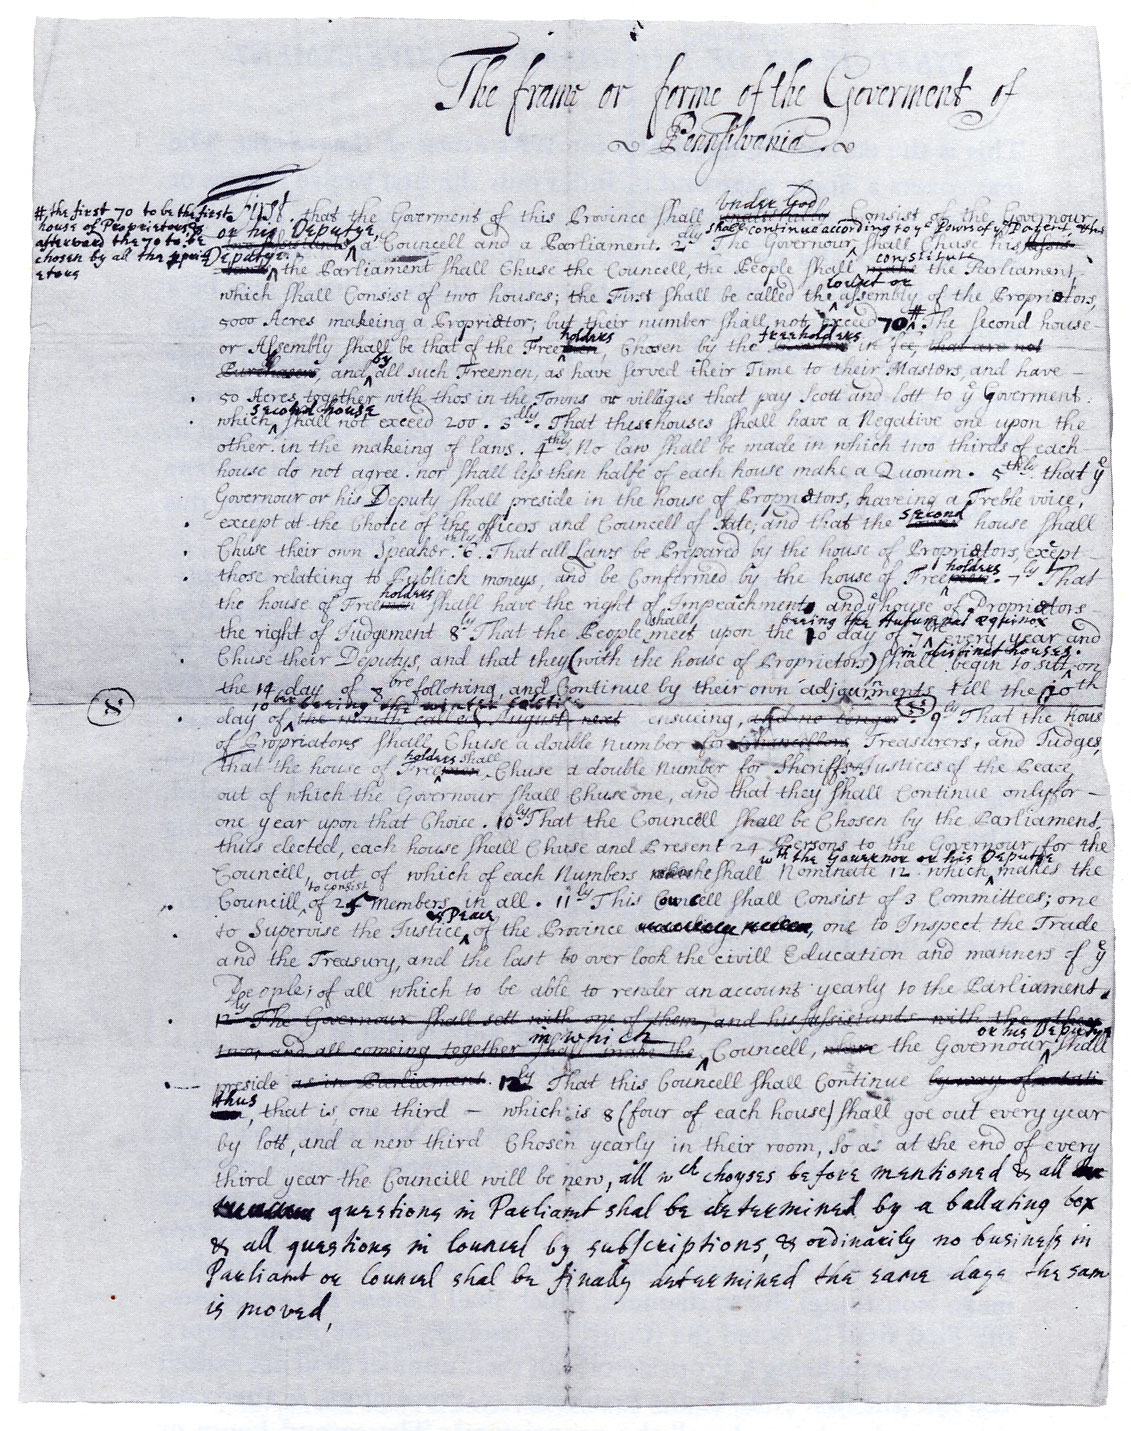 The frame or forme of the Goverment of
Pennsilvania.
#, the first 70 to be the first
house of Proprietors &
afterward the 70 to be
chosen by all the
etors
under God
First. that the Goverment of this Province shall Consist of the Governour
or his Deputye shall continue according to ye Powrs of ye Patent,
a Councell and a Parliament. 2dly The Governour shall Chuse his
Deputye. constitute
the Parliament shall Chuse the Councell, the People shall make the Parliament,
court or
which shall Consist of two houses; the First shall be called the assembly of the Proprietors,
5000 Acres makeing a Proprietor; but their number shall not Exceed 70 #. The second house
holders freeholders
or Assembly shall be that of the Freemen, Chosen by the in fee, that are not
by
Purchasers, and all such Freemen, as have served their Time to their Masters, and have
50 Acres together with thos in the Towns or villages that pay Scott and lott to ye Goverment:
second house
which shall not exceed 200. 3dly. That these houses shall have a Negative one upon the
other in the makeing of laws. 4thly No law shall be made in which two thirds of each
house do not agree. nor shall less then halfe of each house make a Quorum. 5thly. that ye
Governour or his Deputy shall preside in the house of Proprietors, haveing a Treble voice,
second
except at the Choice of the officers and Councell of State, and that the house shall
Chuse their own Speaker. 6thly. That all Laws be Prepared by the house of Proprietors, except
holders
those relateing to Publick moneys, and be Confirmed by the house of Freemen. 7ly That
holders
the house of Freemen shall have the right of Impeachment, and ye house of Proprietors
shall being the Autumnal equinox
the right of Judgement 8ly That the People meet upon the 10 day of 7br every year and
in distinct houses.
Chuse their Deputys, and that they (with the house of Proprietors) shall begin to sitt on
the 14 day of 8bre following, and Continue by their own adjournments till the 10th
10br being the winter solstice
8
day of the month called August next ensuing, and no longer. 8 9ly That the hous
of Propriators shall Chuse a double number for Chancellors Treasurers, and Judges,
holders shall
that the house of Freemen Chuse a double Number for Sheriffs & Justices of the Peace,
out of which the Governour shall Chuse one, and that they shall Continue only for
one year upon that Choice. 10ly That the Councell shall be Chosen by the Parliament,
thus elected, each house shall Chuse and Present 24 Persons to the Governour for the
wth the Governor or his Deputye
Councill, out of which of each Numbers he shall Nominate 12 which makes the
to consist
Councill of 25 members in all. 11ly This Councell shall Consist of 3 Committees; one
& Peace
to Supervise the Justice of the Province, one to Inspect the Trade
and the Treasury, and the last to over look the civill Education and manners of ye
People; of all which to be able to render an account yearly to the Parliament.
12ly The Governour shall sett with one of them, and his assistants with the other
in which or his Deputye
two, and all comeing together shall make the Councell, the Governour shall
preside as in Parliament. 12ly That this Councell shall Continue by way of rotati
thus
, that is, one third — which is 8 (four of each house) shall goe out every year
by lott, and a new third Chosen yearly in their room, So as at the end of every
third year the Councill will be new, all wch choyses before mentioned & all
questions in Parliamt shal be determined by a ballating box
& all questions in Councel by subscriptions, & ordinarily no business in
Parliamt or Councel shal be finally determined the same daye the sam
is moved,